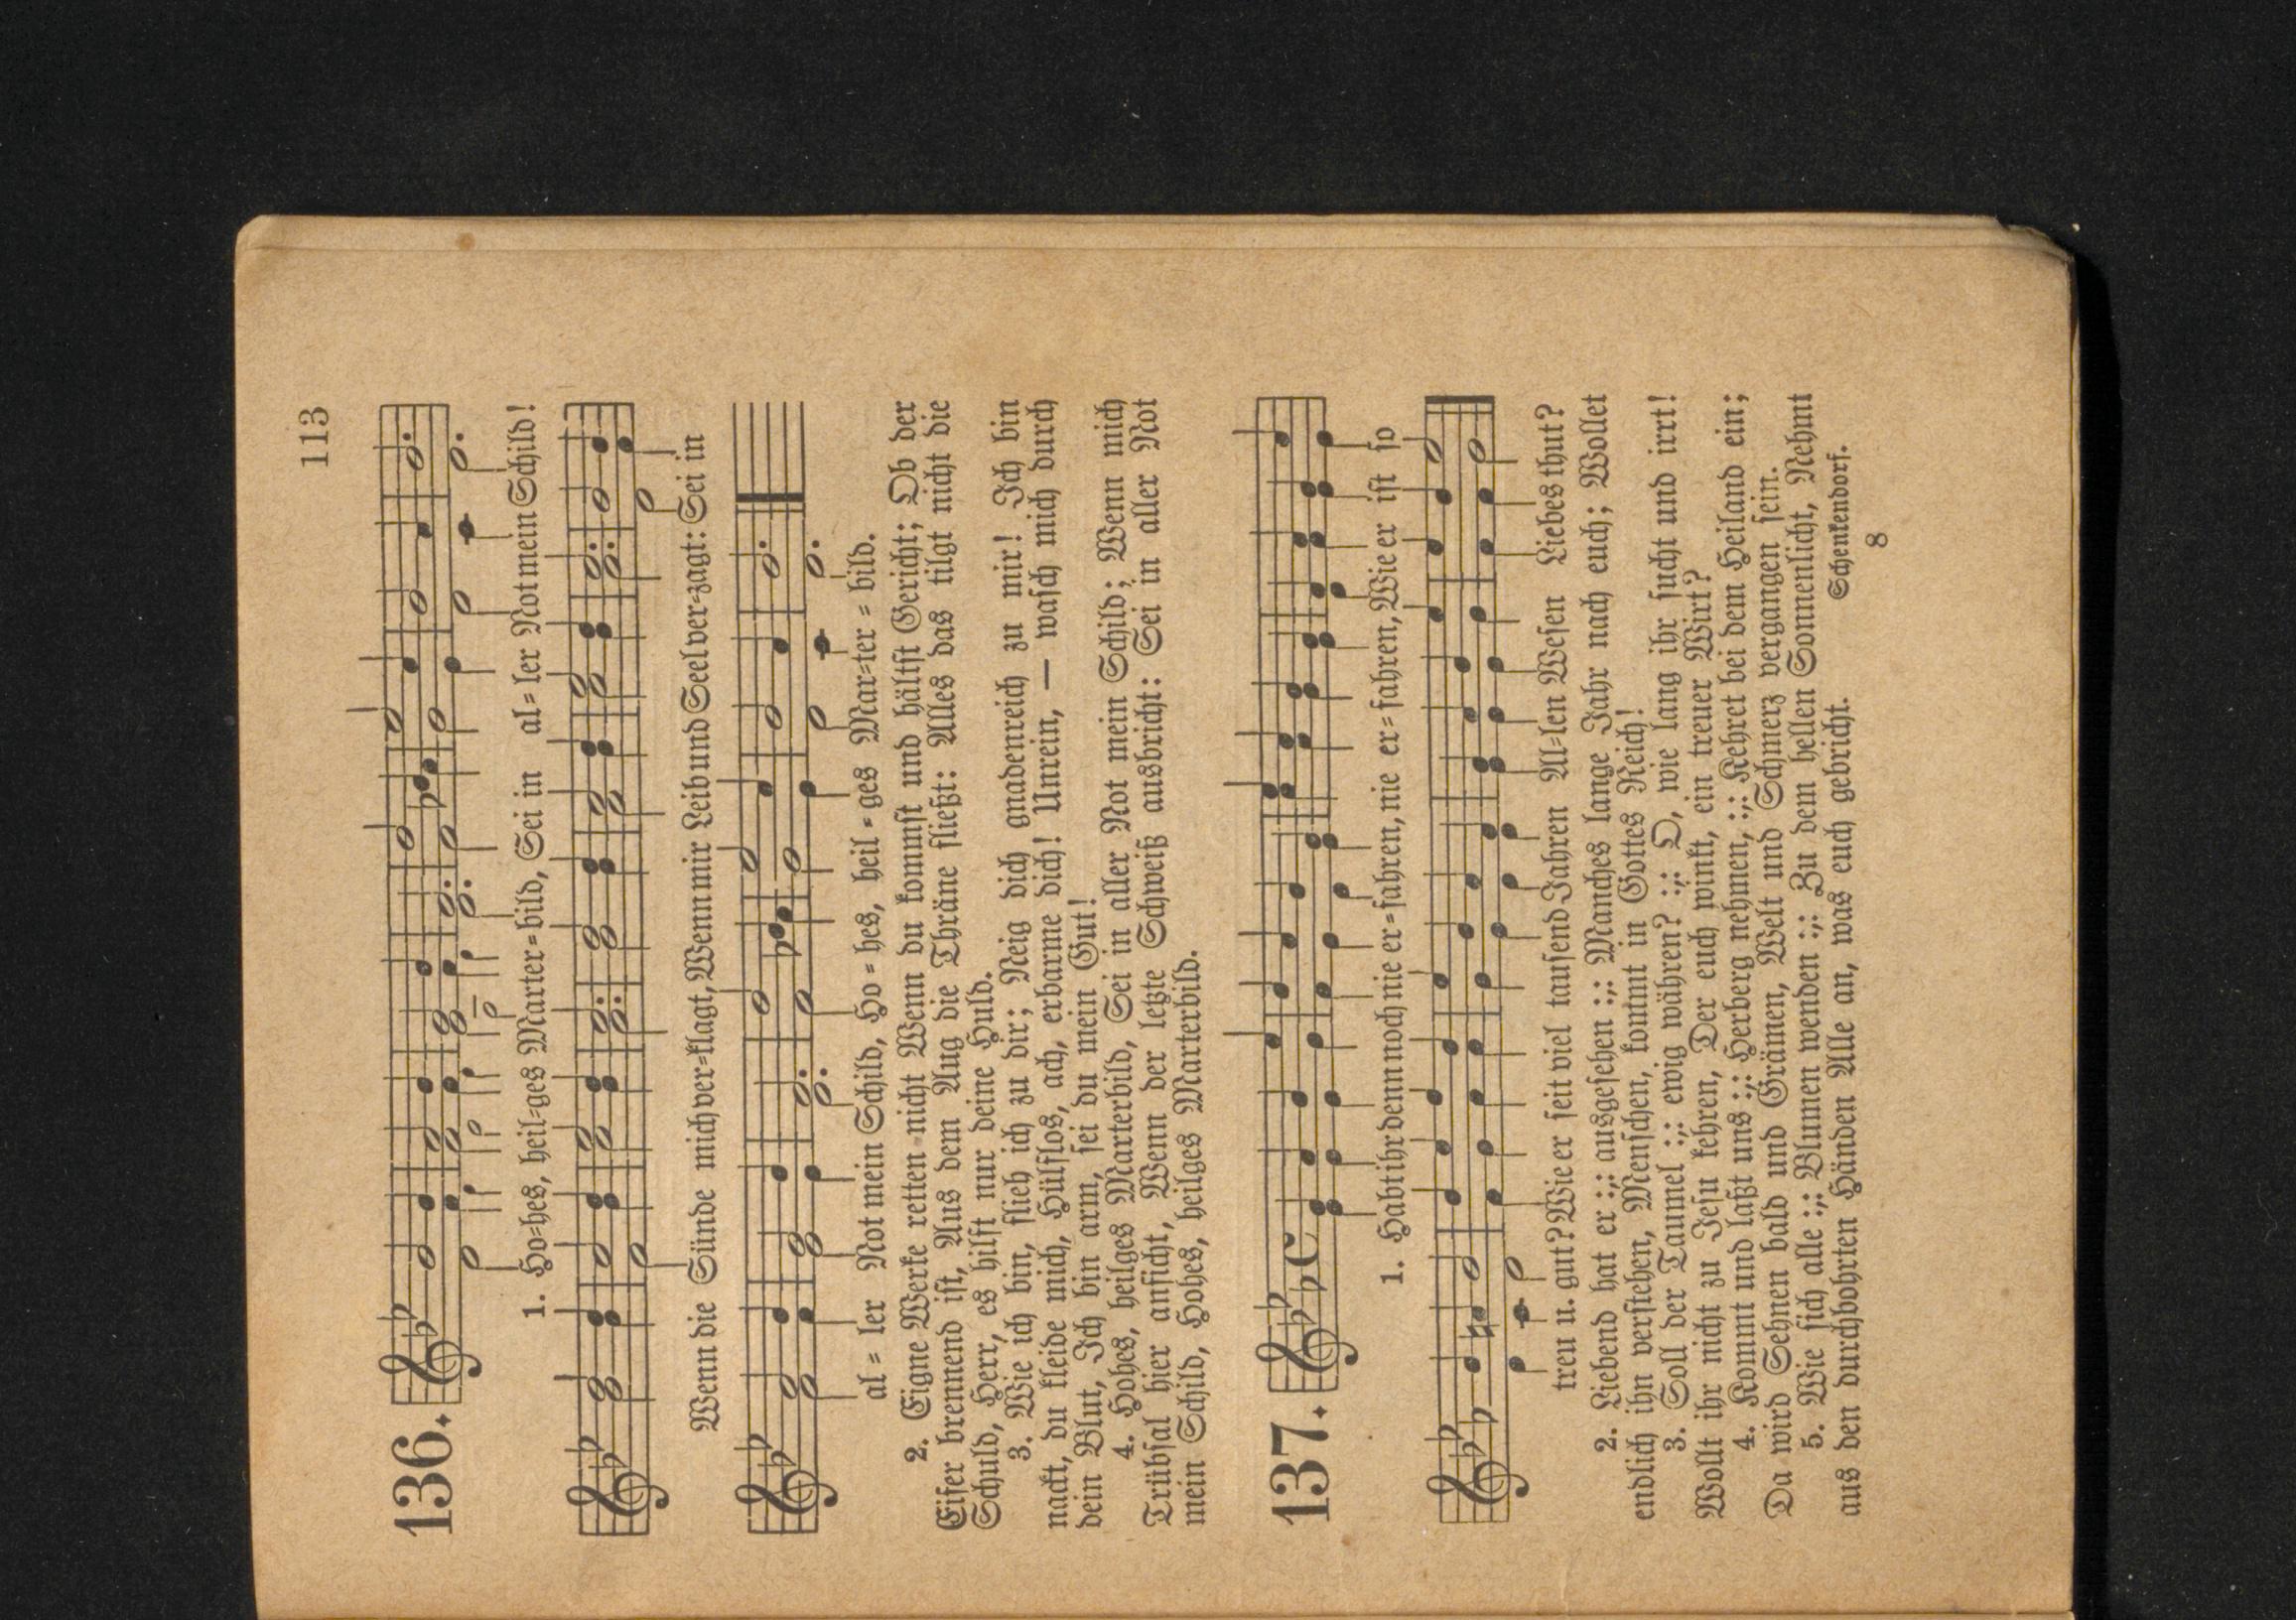 113
136.
1. Ho=hes, heil=ges Marter=bild, Sei in al=ler Not mein Schild!
Wenn die Sünde mich ver=klagt, Wenn mir Leib und Seel ver=zagt: Sei in
al=ler Not mein Schild, Ho=hes, heil=ges Mar=ter=bild.
2. Eigne Werke retten nicht Wenn du kommst und hältst Gericht; Ob der
Eifer brennend ist, Aus dem Aug die Thräne fließt: Alles das tilgt nicht die
Schuld, Herr, es hilft nur deine Huld.
3. Wie ich bin, flieh ich zu dir; Neig dich gnadenreich zu mir! Ich bin
nackt, du kleide mich, Hülflos, ach, erbarme dich! Unrein, — wasch mich durch
dein Blut, Ich bin arm, sei du mein Gut!
4. Hohes, heilges Marterbild, Sei in aller Not mein Schild; Wenn mich
Trübsal hier anficht, Wenn der letzte Schweiß ausbricht: Sei in aller Not
mein Schild, Hohes, heilges Marterbild.
137.
1. Habt ihr denn noch nie er=fahren, nie er=fahren, Wie er ist so
treu u. gut? Wie er seit viel tausend Jahren Al=len Wesen Liebes thut?
2. Liebend hat er :,: ausgesehen :,: Manches lange Jahr nach euch; Wollet
endlich ihn verstehen, Menschen, kommt in Gottes Reich!
3. Soll der Taumel :,: ewig währen? :,: O, wie lang ihr sucht und irrt!
Wollt ihr nicht zu Jesu kehren, Der euch winkt, ein treuer Wirt?
4. Kommt und laßt uns :,: Herberg nehmen, :,: Kehret bei dem Heiland ein;
Da wird Sehnen bald und Grämen, Welt und Schmerz vergangen sein.
5. Wie sich alle :,: Blumen wenden :,: Zu dem hellen Sonnenlicht, Nehmt
aus den durchbohrten Händen Alle an, was euch gebricht.
Schenkendorf.
8